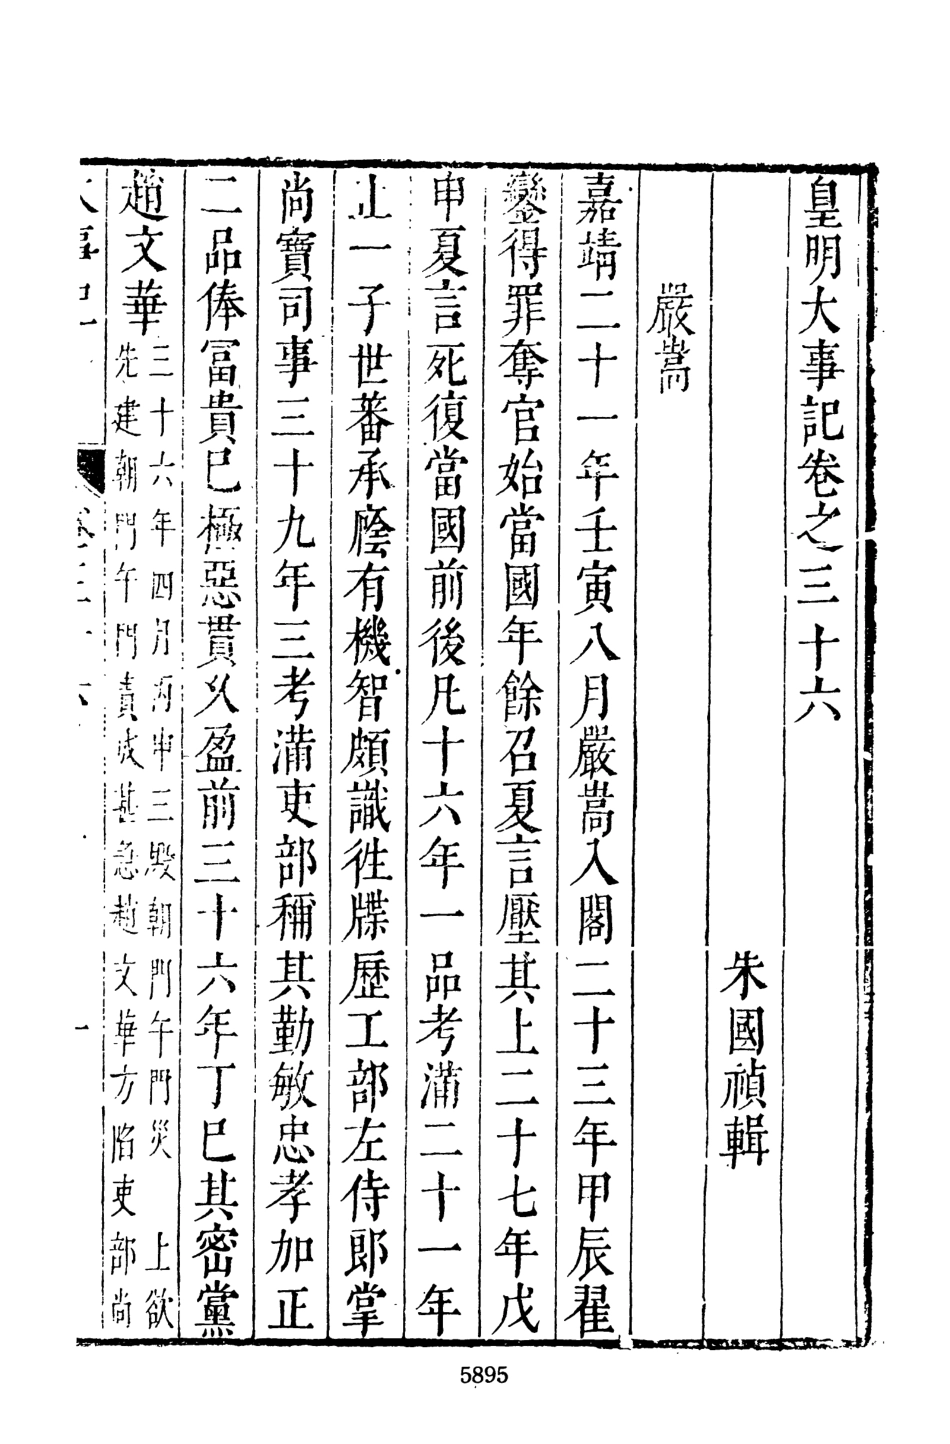 皇明大事記卷之三十六
朱國禎輯
嚴嵩
嘉靖二十一年壬寅八月嚴嵩入閣二十三年甲辰翟
鑾得罪奪官始當國年餘召夏言壓其上二十七年戊
申夏言死復當國前後凡十六年一品考滿二十一年
止一子世蕃承廕有機智頗識徃牒歷工部左侍郎掌
尚寶司事三十九年三考滿吏部稱其勤敏忠孝加正
二品俸冨貴已極惡貫乆盈前三十六年丁巳其密黨
趙文華
三十六年四月丙申三殿朝門午門災 上欲
先建朝門午門責成甚急趙文華方陷吏部尚
5895